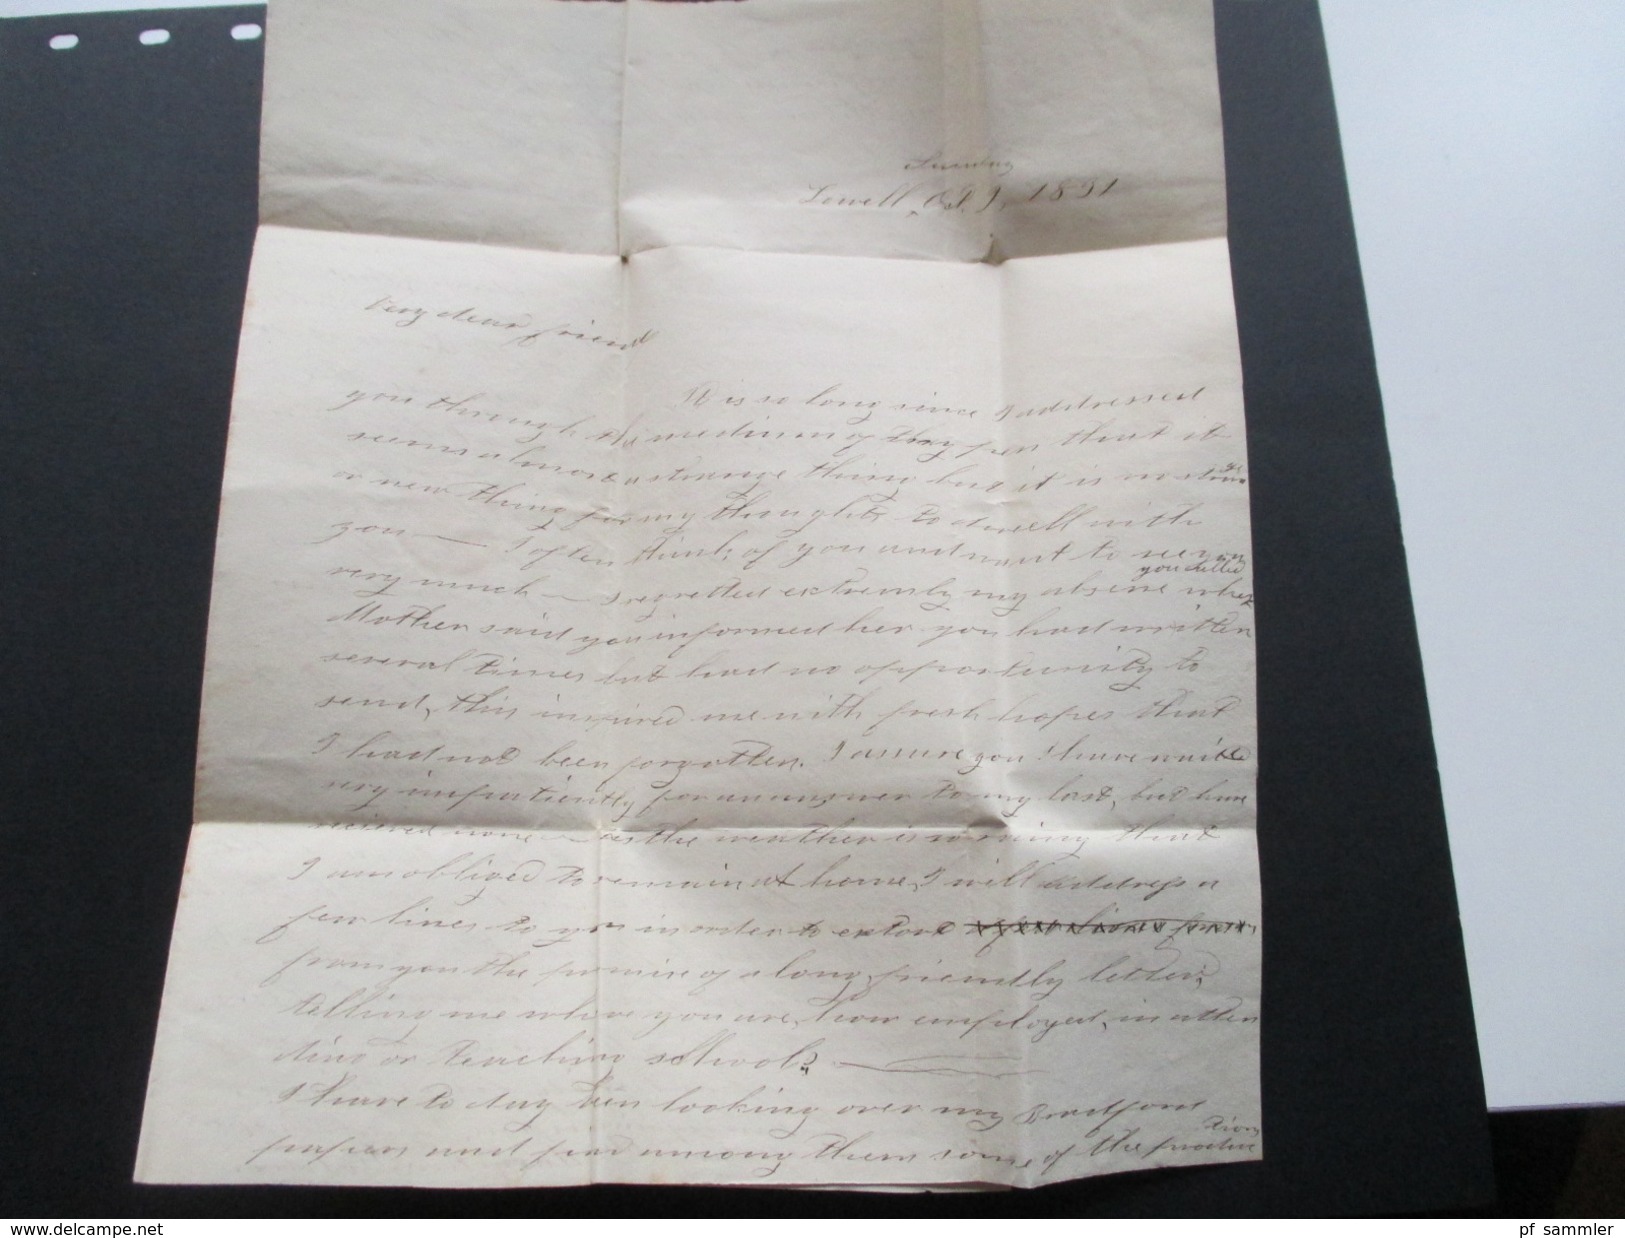 Sunday
Lowell, Oct. 9, 1831
Very dear friend
It is so long since I addressed
you through the medium of my pen that it
seems almost a strange thing but it is no strange
or new thing for my thoughts to dwell with
you — I often think of you and want to see you
very much — I regretted extremely my absence when you called
Mother said you informed her you had written
several times but had no opportunity to
send, this inspired me with fresh hopes that
I had not been forgotten. I assure you I have waited
very impatiently for an answer to my last, but have
recieved none — as the weather is so rainy that
I am obliged to remain at home, I will address a
few lines to you in order to extort a few lines from
from you the promise of a long, friendly letter,
telling me where you are, how employed, in atten
ding or teaching school? —
I have to day been looking over my Bradford
papers and find among them some of the productions
www.delcampe.net
pf sammler